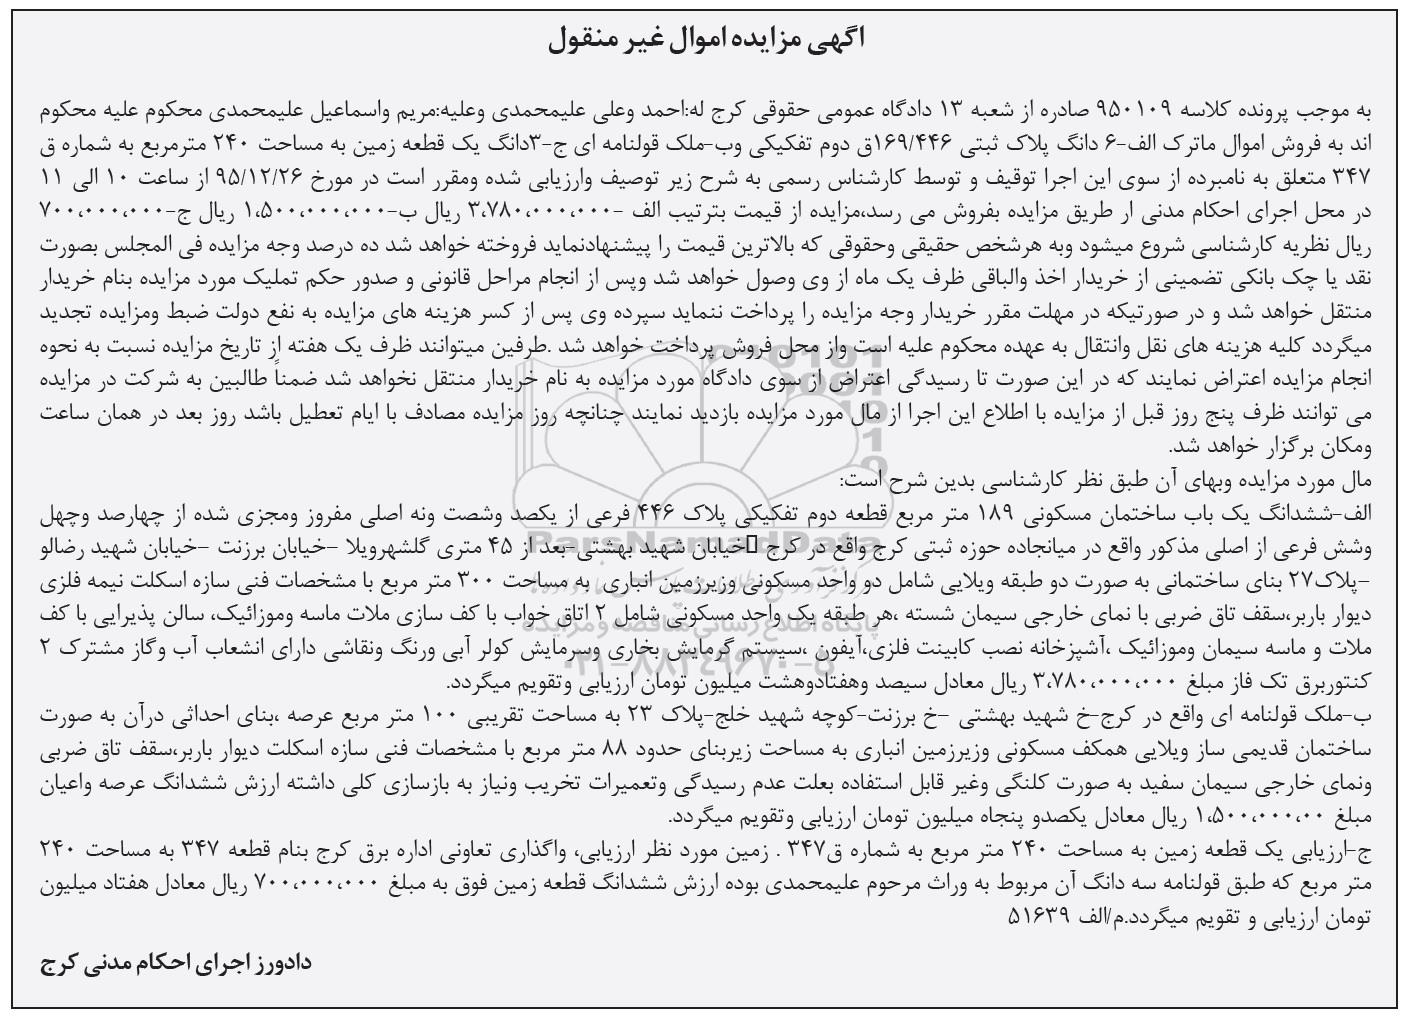 اگهی مزایده اموال غیر منقول
به موجب پرونده کلاسه ۹۵۰۱۰۹ صادره از شعبه ۱۳ دادگاه عمومی حقوقی کرج له:احمد وعلی علیمحمدی وعلیه:مریم واسماعیل علیمحمدی محکوم علیه محکوم
اند به فروش اموال ماترک الف-۶ دانگ پلاک ثبتی ۱۶۹/۴۴۶ق دوم تفکیکی وب-ملک قولنامه ای ج-۳دانگ یک قطعه زمین به مساحت ۲۴۰ مترمربع به شماره ق
۳۴۷ متعلق به نامبرده از سوی این اجرا توقیف و توسط کارشناس رسمی به شرح زیر توصیف وارزیابی شده ومقرر است در مورخ ۹۵/۱۲/۲۶ از ساعت ۱۰ الی ۱۱
در محل اجرای احکام مدنی ار طریق مزایده بفروش می رسد،مزایده از قیمت بترتیب الف -۳،۷۸۰،۰۰۰،۰۰۰ ریال ب-۱،۵۰۰،۰۰۰،۰۰۰ ریال ج-۷۰۰،۰۰۰،۰۰۰
ریال نظریه کارشناسی شروع میشود وبه هرشخص حقیقی وحقوقی که بالاترین قیمت را پیشنهادنماید فروخته خواهد شد ده درصد وجه مزایده فی المجلس بصورت
نقد یا چک بانکی تضمینی از خریدار اخذ والباقی ظرف یک ماه از وی وصول خواهد شد وپس از انجام مراحل قانونی و صدور حکم تملیک مورد مزایده بنام خریدار
منتقل خواهد شد و در صورتیکه در مهلت مقرر خریدار وجه مزایده را پرداخت ننماید سپرده وی پس از کسر هزینه های مزایده به نفع دولت ضبط ومزایده تجدید
میگردد کلیه هزینه های نقل وانتقال به عهده محکوم علیه است واز محل فروش پرداخت خواهد شد .طرفین میتوانند ظرف یک هفته از تاریخ مزایده نسبت به نحوه
انجام مزایده اعتراض نمایند که در این صورت تا رسیدگی اعتراض از سوی دادگاه مورد مزایده به نام خریدار منتقل نخواهد شد ضمناً طالبین به شرکت در مزایده
می توانند ظرف پنج روز قبل از مزایده با اطلاع این اجرا از مال مورد مزایده بازدید نمایند چنانچه روز مزایده مصادف با ایام تعطیل باشد روز بعد در همان ساعت
ومکان برگزار خواهد شد.
مال مورد مزایده وبهای آن طبق نظر کارشناسی بدین شرح است:
الف-ششدانگ یک باب ساختمان مسکونی ۱۸۹ متر مربع قطعه دوم تفکیکی پلاک ۴۴۶ فرعی از یکصد وشصت ونه اصلی مفروز ومجزی شده از چهارصد وچهل
وشش فرعی از اصلی مذکور واقع در میانجاده حوزه ثبتی کرج واقع در کرج خیابان شهید بهشتی-بعد از ۴۵ متری گلشهرویلا –خیابان برزنت –خیابان شهید رضالو
–پلاک۲۷ بنای ساختمانی به صورت دو طبقه ویلایی شامل دو واحد مسکونی وزیرزمین انباری به مساحت ۳۰۰ متر مربع با مشخصات فنی سازه اسکلت نیمه فلزی
دیوار باربر،سقف تاق ضربی با نمای خارجی سیمان شسته ،هر طبقه یک واحد مسکونی شامل ۲ اتاق خواب با کف سازی ملات ماسه وموزائیک، سالن پذیرایی با کف
ملات و ماسه سیمان وموزائیک ،آشپزخانه نصب کابینت فلزی،آیفون ،سیستم گرمایش بخاری وسرمایش کولر آبی ورنگ ونقاشی دارای انشعاب آب وگاز مشترک ۲
کنتوربرق تک فاز مبلغ ۳،۷۸۰،۰۰۰،۰۰۰ ریال معادل سیصد وهفتادوهشت میلیون تومان ارزیابی وتقویم میگردد.
ب-ملک قولنامه ای واقع در کرج-خ شهید بهشتی –خ برزنت-کوچه شهید خلج-پلاک ۲۳ به مساحت تقریبی ۱۰۰ متر مربع عرصه ،بنای احداثی درآن به صورت
ساختمان قدیمی ساز ویلایی همکف مسکونی وزیرزمین انباری به مساحت زیربنای حدود ۸۸ متر مربع با مشخصات فنی سازه اسکلت دیوار باربر،سقف تاق ضربی
ونمای خارجی سیمان سفید به صورت کلنگی وغیر قابل استفاده بعلت عدم رسیدگی وتعمیرات تخریب ونیاز به بازسازی کلی داشته ارزش ششدانگ عرصه واعیان
مبلغ ۱،۵۰۰،۰۰۰،۰۰ ریال معادل یکصدو پنجاه میلیون تومان ارزیابی وتقویم میگردد.
ج-ارزیابی یک قطعه زمین به مساحت ۲۴۰ متر مربع به شماره ق۳۴۷ . زمین مورد نظر ارزیابی، واگذاری تعاونی اداره برق کرج بنام قطعه ۳۴۷ به مساحت ۲۴۰
متر مربع که طبق قولنامه سه دانگ آن مربوط به وراث مرحوم علیمحمدی بوده ارزش ششدانگ قطعه زمین فوق به مبلغ ۷۰۰،۰۰۰،۰۰۰ ریال معادل هفتاد میلیون
تومان ارزیابی و تقویم میگردد.م/الف ۵۱۶۳۹
دادورز اجرای احکام مدنی کرج
ParsNamadData
پایگاه اطلاع رسانی مناقصه و مزایده
۰۲۱-۸۸۳۴۹۶۷۰-۵